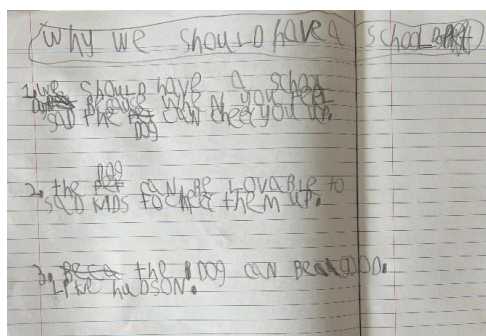 Why we should have a school
1. we should have a school
Because when you feel
sad the DOG can cheer you up.
2. the DOG can Be lovable to
sad kids to cheer them up.
3. the DOG can Be a
like hudson.